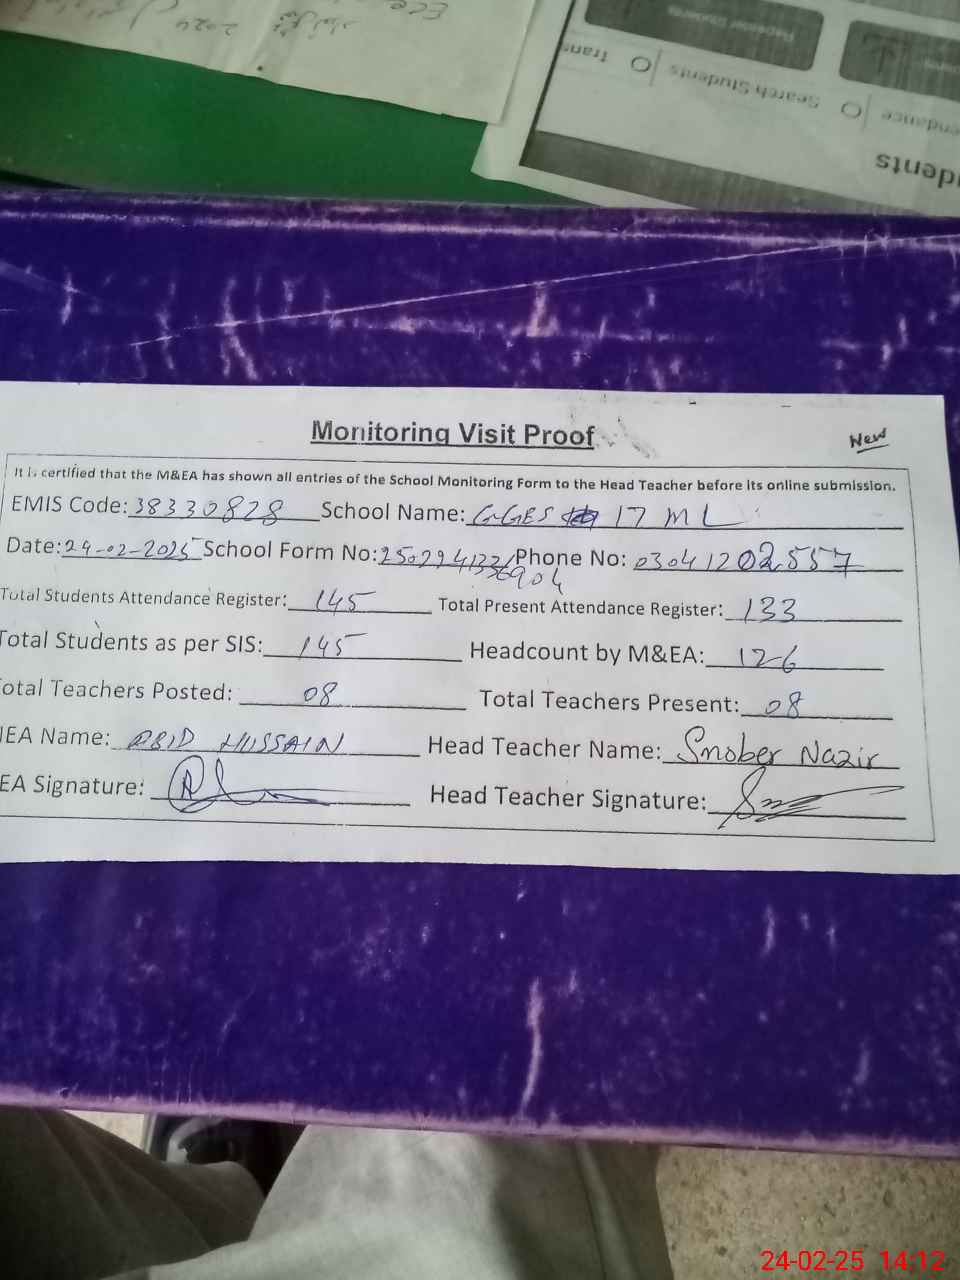 ECE
2024
Trans
Search Students
endance
dents
Monitoring Visit Proof
New
It is certified that the M&EA has shown all entries of the School Monitoring Form to the Head Teacher before its online submission.
EMIS Code: 38330828 School Name: GGES 17 ML
Date: 24-02-2025 School Form No: Phone No: 03041202557
Total Students Attendance Register: 145 Total Present Attendance Register: 133
Total Students as per SIS: 145 Headcount by M&EA: 126
otal Teachers Posted: 08 Total Teachers Present: 08
EA Name: ABID HUSSAIN Head Teacher Name: Smober Nazir
EA Signature: Head Teacher Signature:
24-02-25 14:12